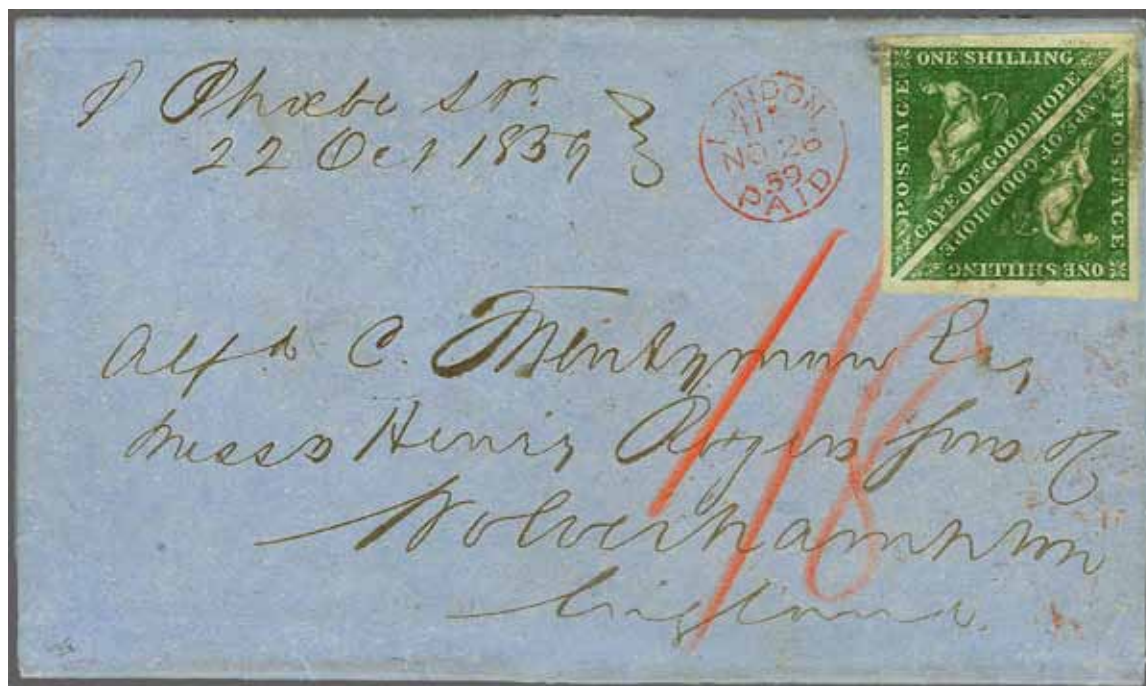 ℘ Phœbe Str.
22 Oct 1859
LONDON
NO 26
59
PAID
ONE SHILLING
POSTAGE
CAPE OF GOOD HOPE
CAPE OF GOOD HOPE
POSTAGE
ONE SHILLING
1/8
Alfd. C. Esq
Messrs Henry Rogers Sons &
Wolverhampton
England.